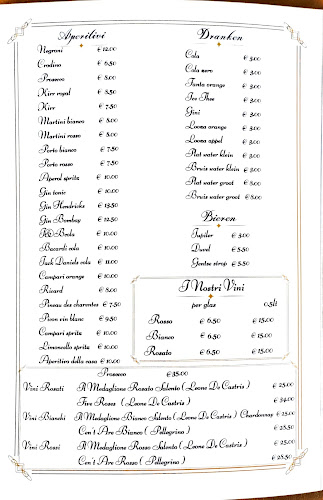 Aperitivi
Negroni € 12.00
Crodino € 6.50
Prosecco € 8.00
Kirr royal € 8.50
Kirr € 7.50
Martini bianco € 8.00
Martini rosso € 8.00
Porto bianco € 7.50
Porto rosso € 7.50
Aperol spritz € 10.00
Gin tonic € 10.00
Gin Hendricks € 13.50
Gin Bombay € 12.50
J&B cola € 10.00
Bacardi cola € 10.00
Jack Daniels cola € 11.00
Campari orange € 10.00
Ricard € 8.00
Pineau des charentes € 7.50
Picon vin blanc € 9.50
Campari spritz € 10.00
Limoncello spritz € 10.00
Aperitivo della casa € 10.00
Dranken
Cola € 3.00
Cola zero € 3.00
Fanta orange € 3.00
Ice Thee € 3.00
Gini € 3.00
Looza orange € 3.00
Looza appel € 3.00
Plat water klein € 3.00
Bruis water klein € 3.00
Plat water groot € 8.00
Bruis water groot € 8.00
Bieren
Jupiler € 3.00
Duvel € 5.50
Gentse strop € 5.50
I Nostri Vini
per glas 0.5lt
Rosso € 6.50 € 15.00
Bianco € 6.50 € 15.00
Rosato € 6.50 € 15.00
Prosecco € 35.00
Vini Rosati Il Medaglione Rosato Salento ( Leone De Castris ) € 25.00
Five Roses ( Leone De Castris ) € 34.00
Vini Bianchi Il Medaglione Bianco Salento ( Leone De Castris ) Chardonnay € 25.00
Cen't Are Bianco ( Pellegrino ) € 28.50
Vini Rossi Il Medaglione Rosso Salento ( Leone De Castris ) € 25.00
Cen't Are Rosso ( Pellegrino ) € 28.50